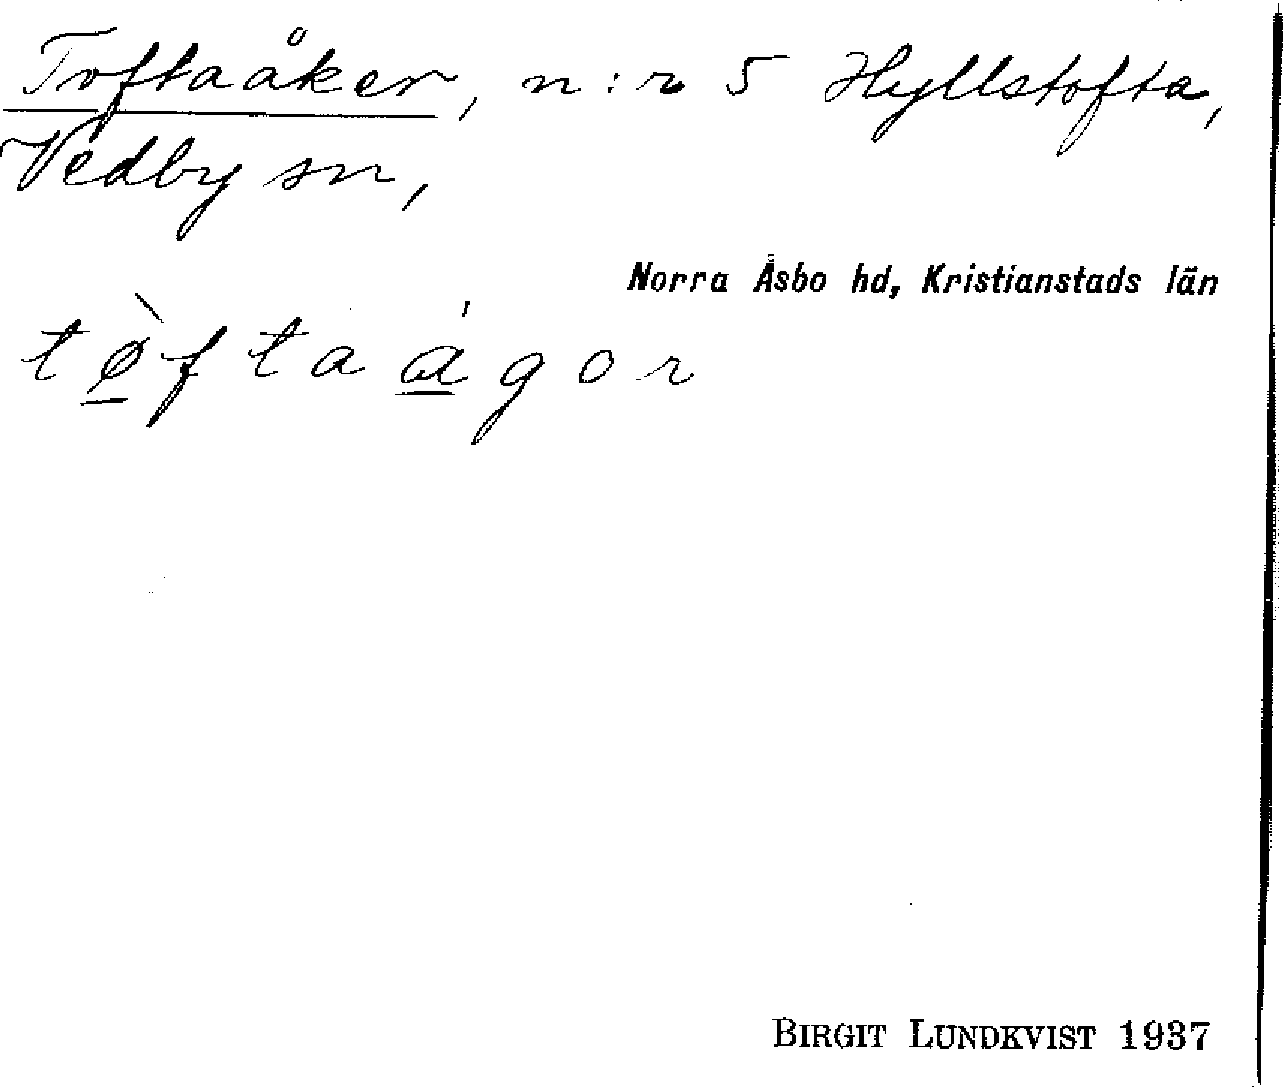 Toftaåker, n:r 5 Hyllstofta,
Vedby sn,
Norra Åsbo hd, Kristianstads län
tø̱̀fta a̱̍gor
BIRGIT LUNDKVIST 1937